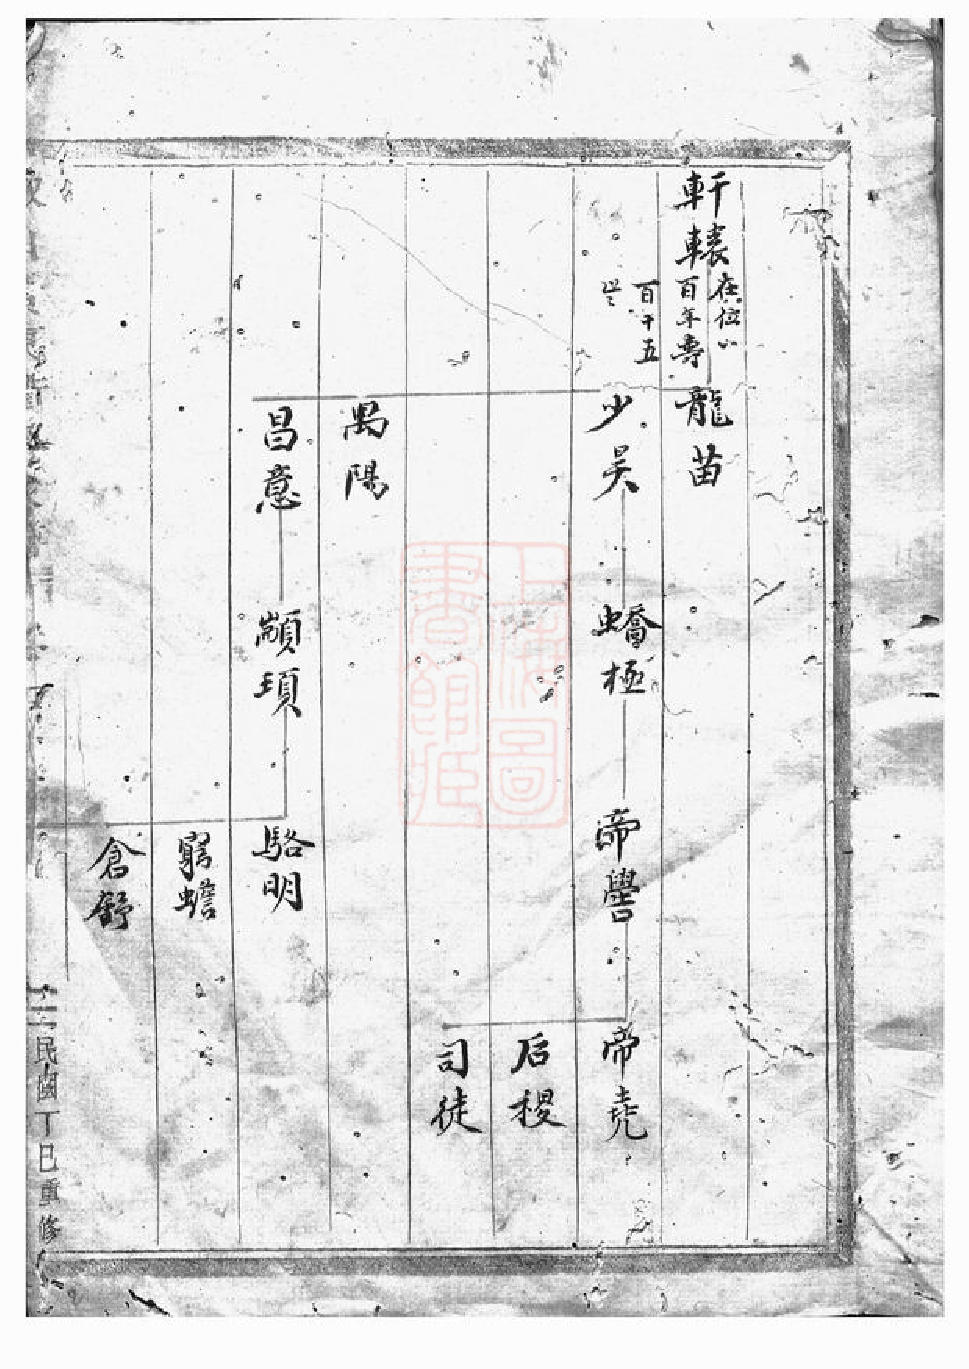 軒轅
在位
百年壽
百十五
龍苗
少昊
蟜極
帝嚳
帝堯
后稷
司徒
禺陽
昌意
顓頊
駱明
窮蟬
倉舒
民國丁巳重修
上海圖書館藏